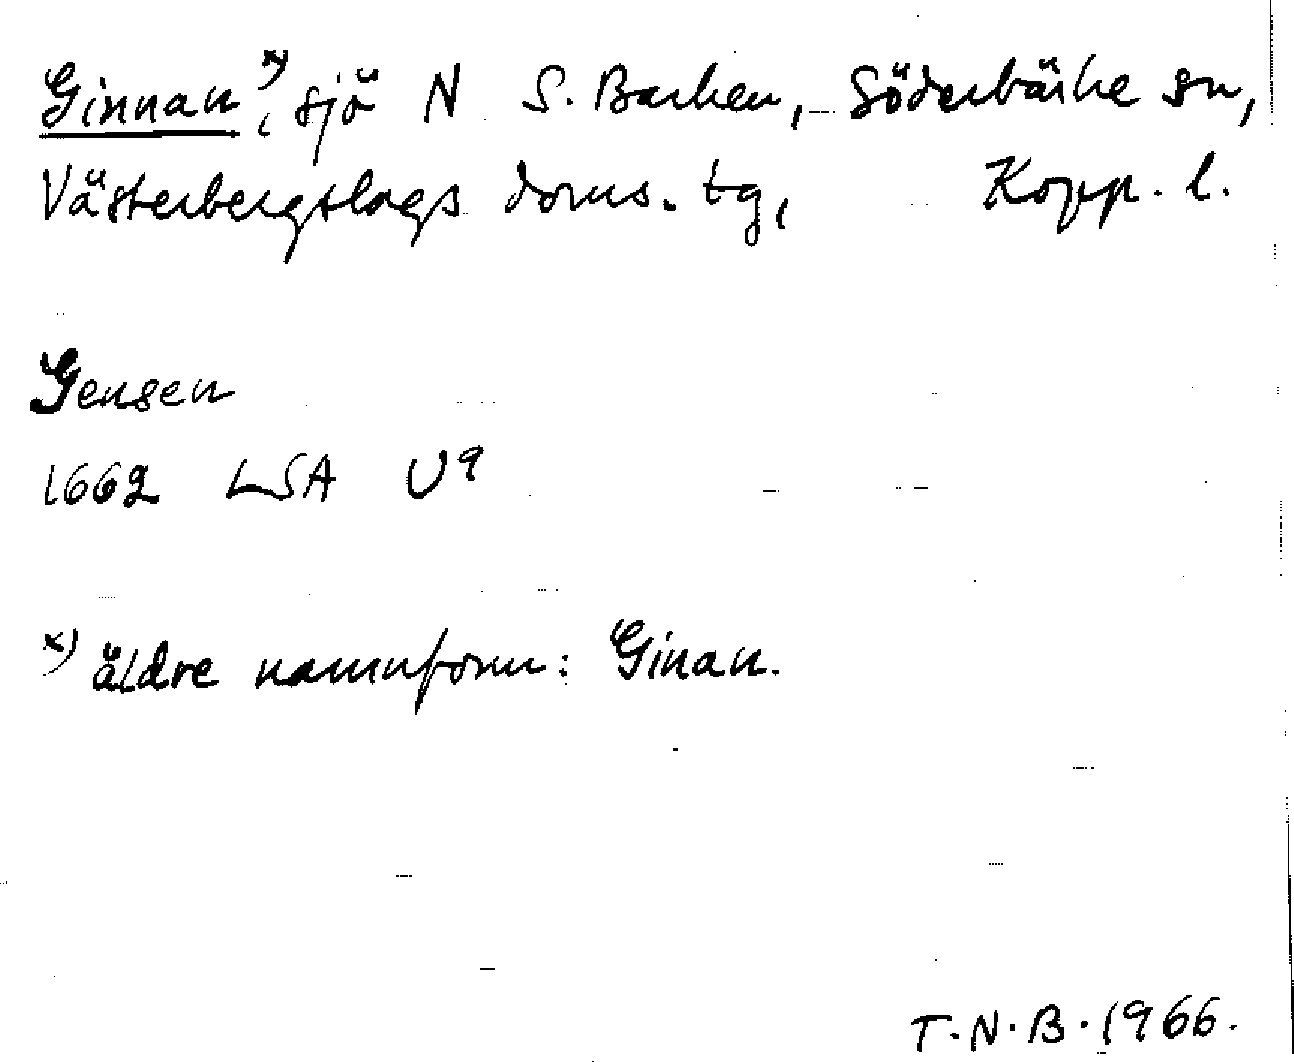 Ginnan x), sjö N S. Barken, Söderbärke sn,
Västerbergslags doms. tg, Kopp. l.
Gensen
1662 LSA U9
x) äldre namnform: Ginan.
T.N.B. 1966.